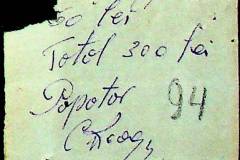 50 lei
Total 300 lei
Popotar 94